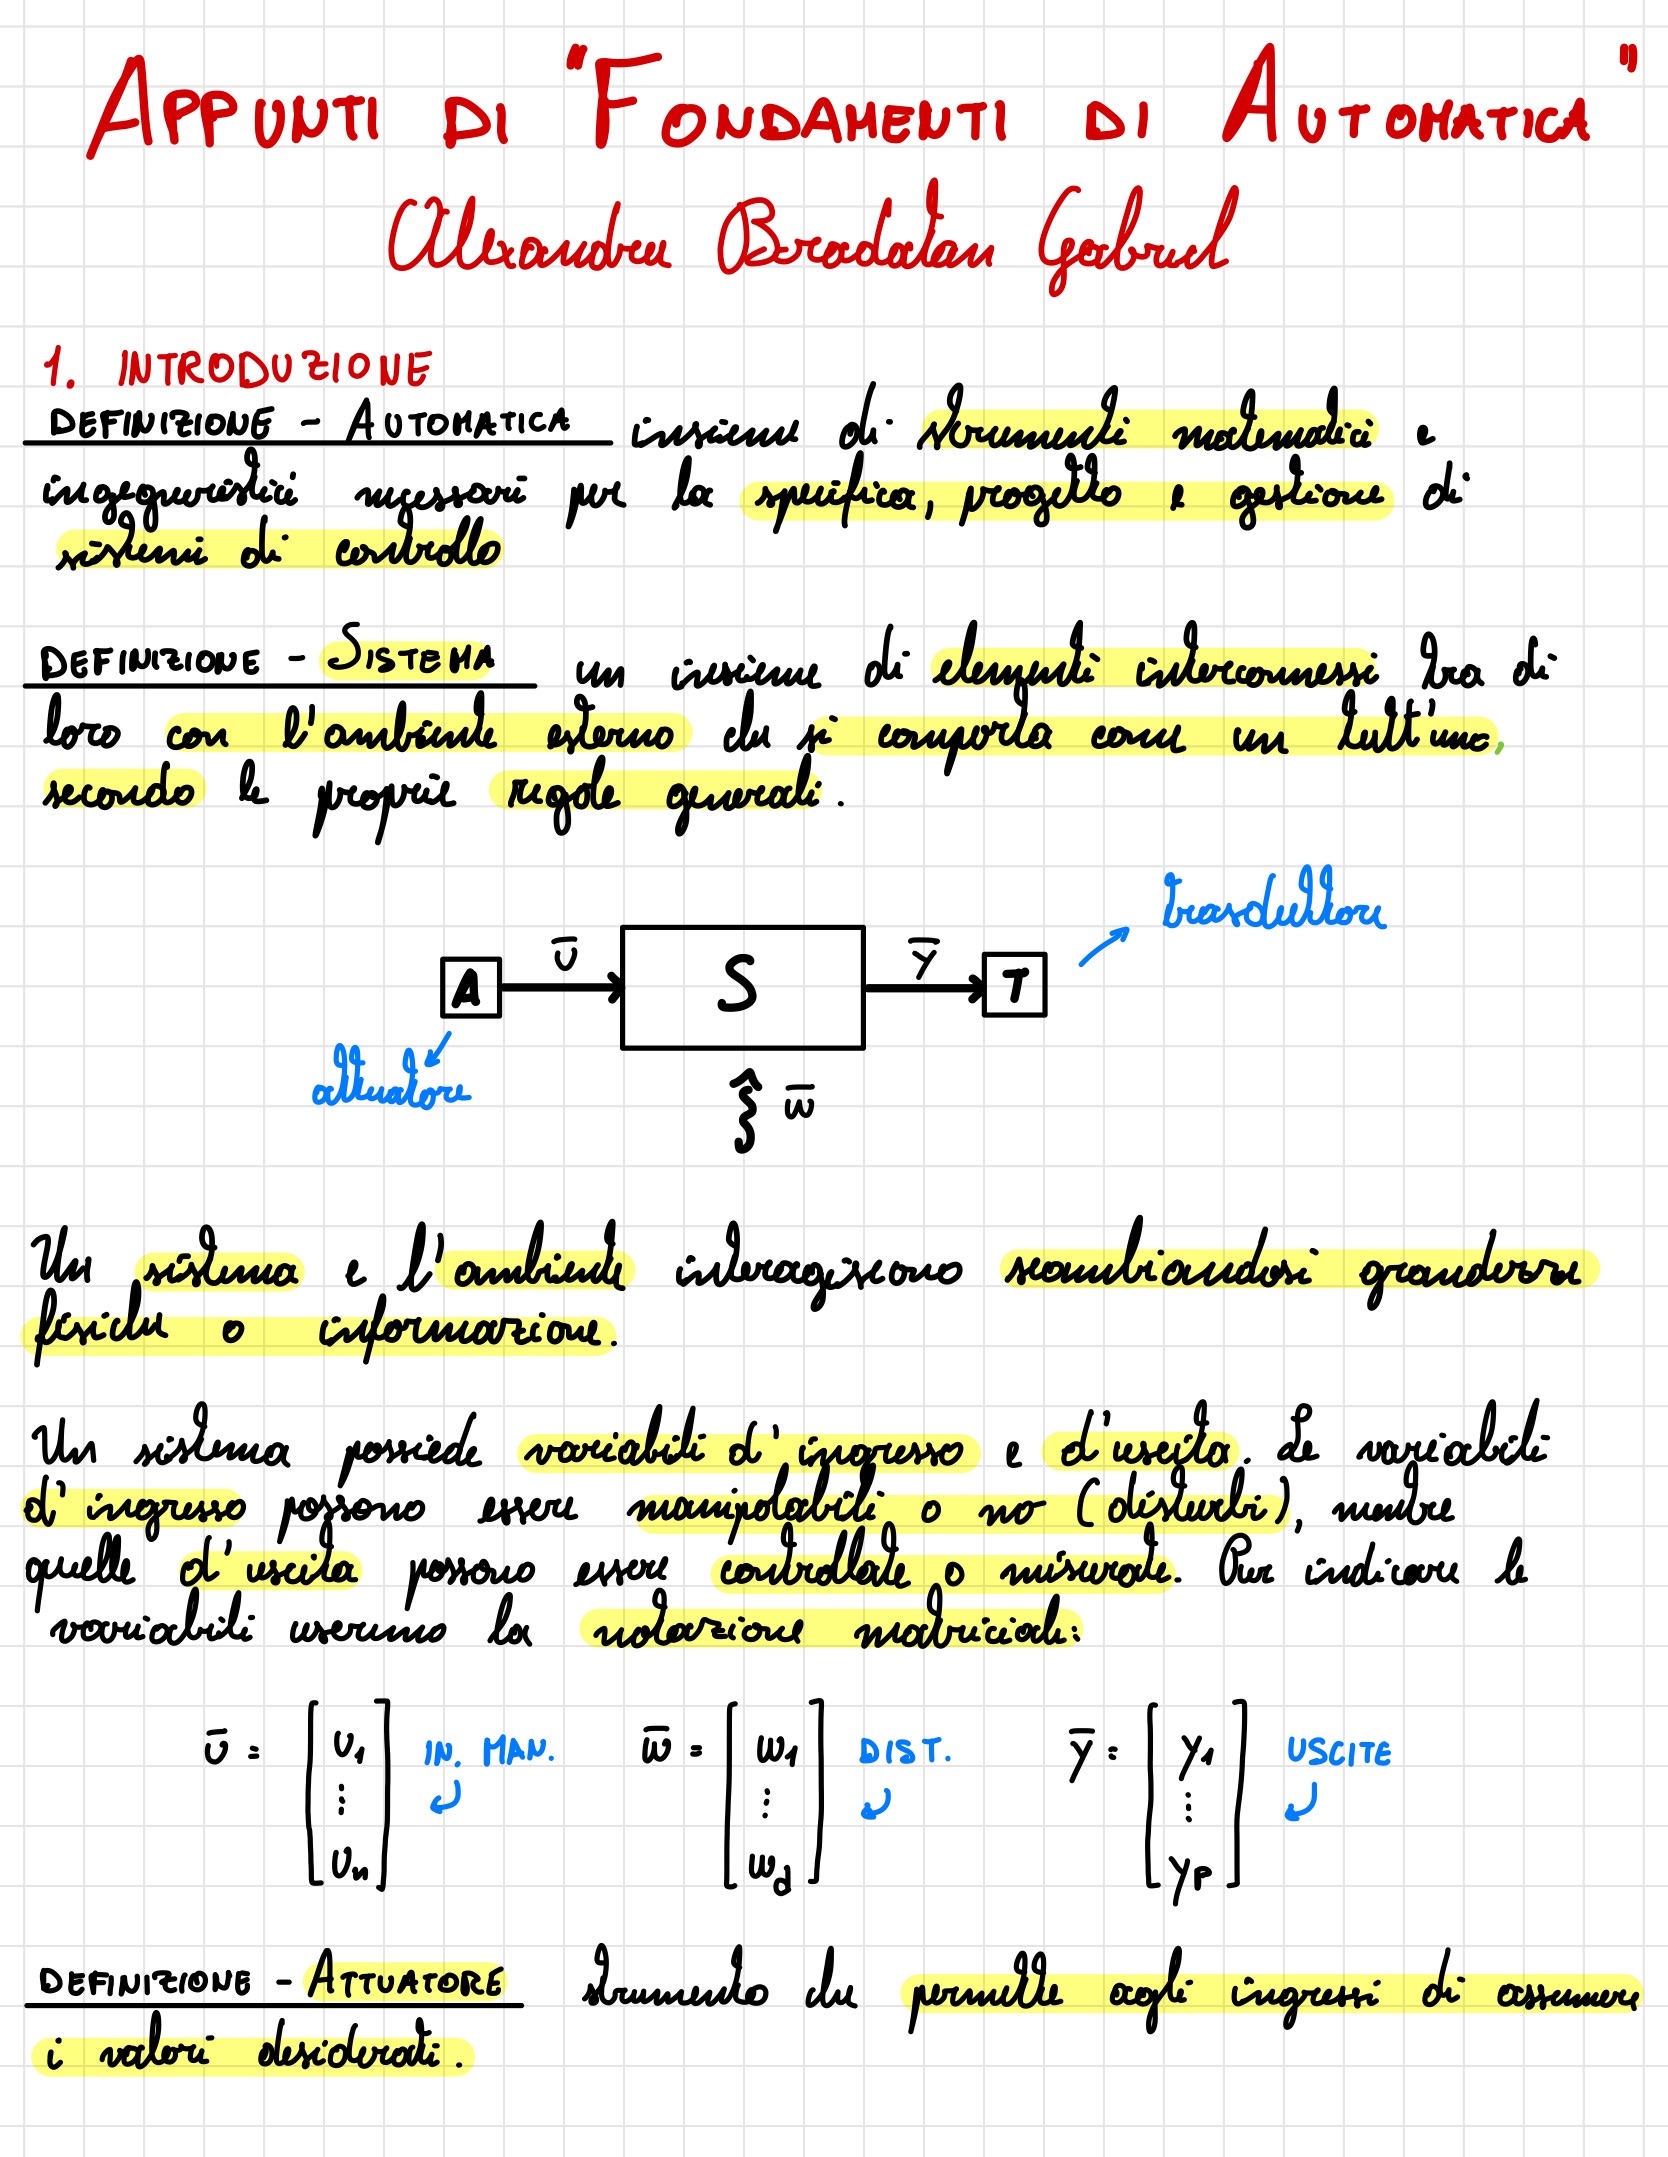 APPUNTI DI "FONDAMENTI DI AUTOMATICA"
Alexandru Bradatan Gabriel
1. INTRODUZIONE
DEFINIZIONE - AUTOMATICA insieme di strumenti matematici e
ingegneristici necessari per la specifica, progetto e gestione di
sistemi di controllo
DEFINIZIONE - SISTEMA un insieme di elementi interconnessi tra di
loro con l'ambiente esterno che si comporta come un tutt'uno,
secondo le proprie regole generali.
trasduttore
A ū S ȳ T
attuatore
w̄
Un sistema e l'ambiente interagiscono scambiandosi grandezze
fisiche o informazione.
Un sistema possiede variabili d'ingresso e d'uscita. Le variabili
d'ingresso possono essere manipolabili o no (disturbi), mentre
quelle d'uscita possono essere controllate o misurate. Per indicare le
variabili useremo la notazione matriciale:
ū = [u₁ ⋮ uₙ] IN. MAN. w̄ = [w₁ ⋮ w_d] DIST. ȳ = [y₁ ⋮ y_p] USCITE
DEFINIZIONE - ATTUATORE strumento che permette agli ingressi di assumere
i valori desiderati.